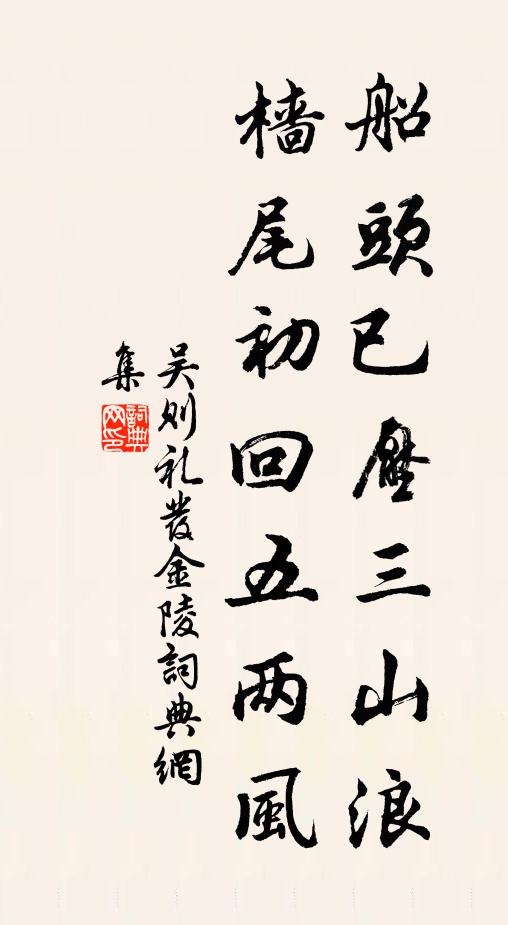 船頭已壓三山浪
檣尾初回五两風
吴则礼發金陵詞典網
集
詞典網印